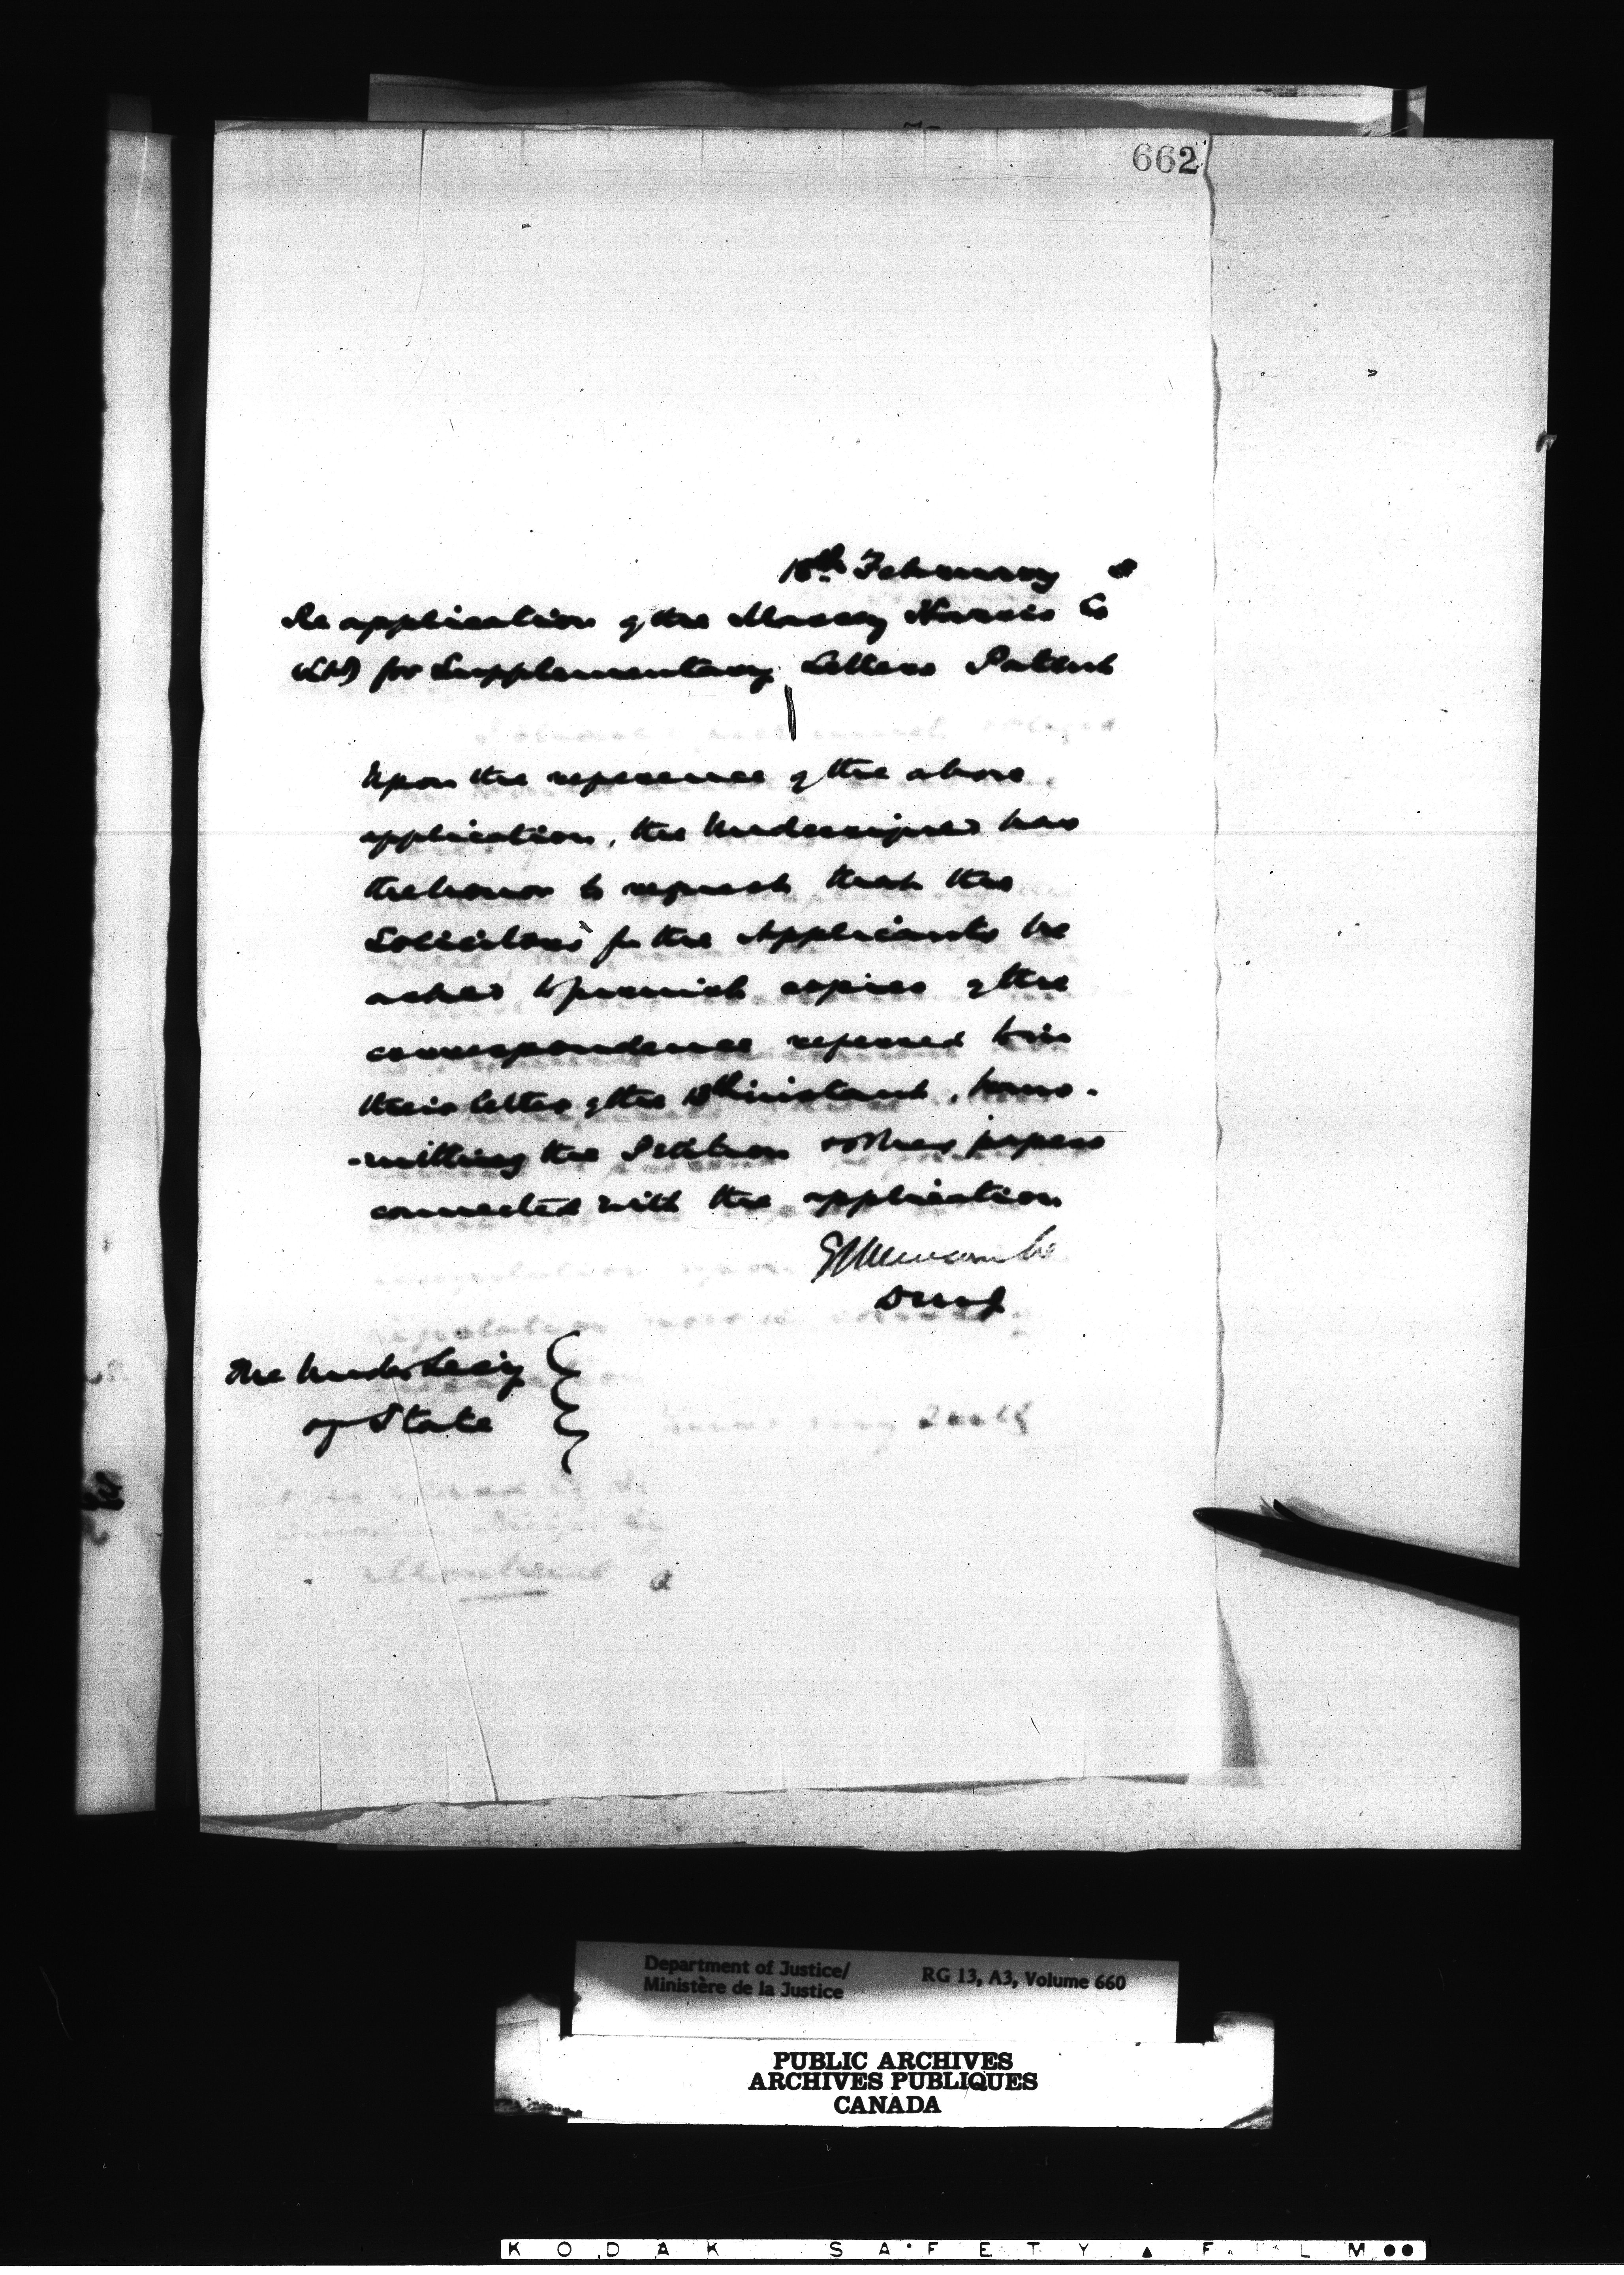 662
18th February 8
Re application of the Massey Harris Co
(Ltd) for Supplementary Letters Patent
Upon the reference of the above
application, the Undersigned has
the honor to request that the
Solicitors for the Applicants be
asked to furnish copies of the
correspondence referred to in
their letter of the instant, trans-
-mitting the Petition & other papers
connected with the application
E L Newcombe
DMofJ
The Under Secy
of State
Department of Justice/
Ministère de la Justice
RG 13, A3, Volume 660
PUBLIC ARCHIVES
ARCHIVES PUBLIQUES
CANADA
KODAK SAFETY FILM